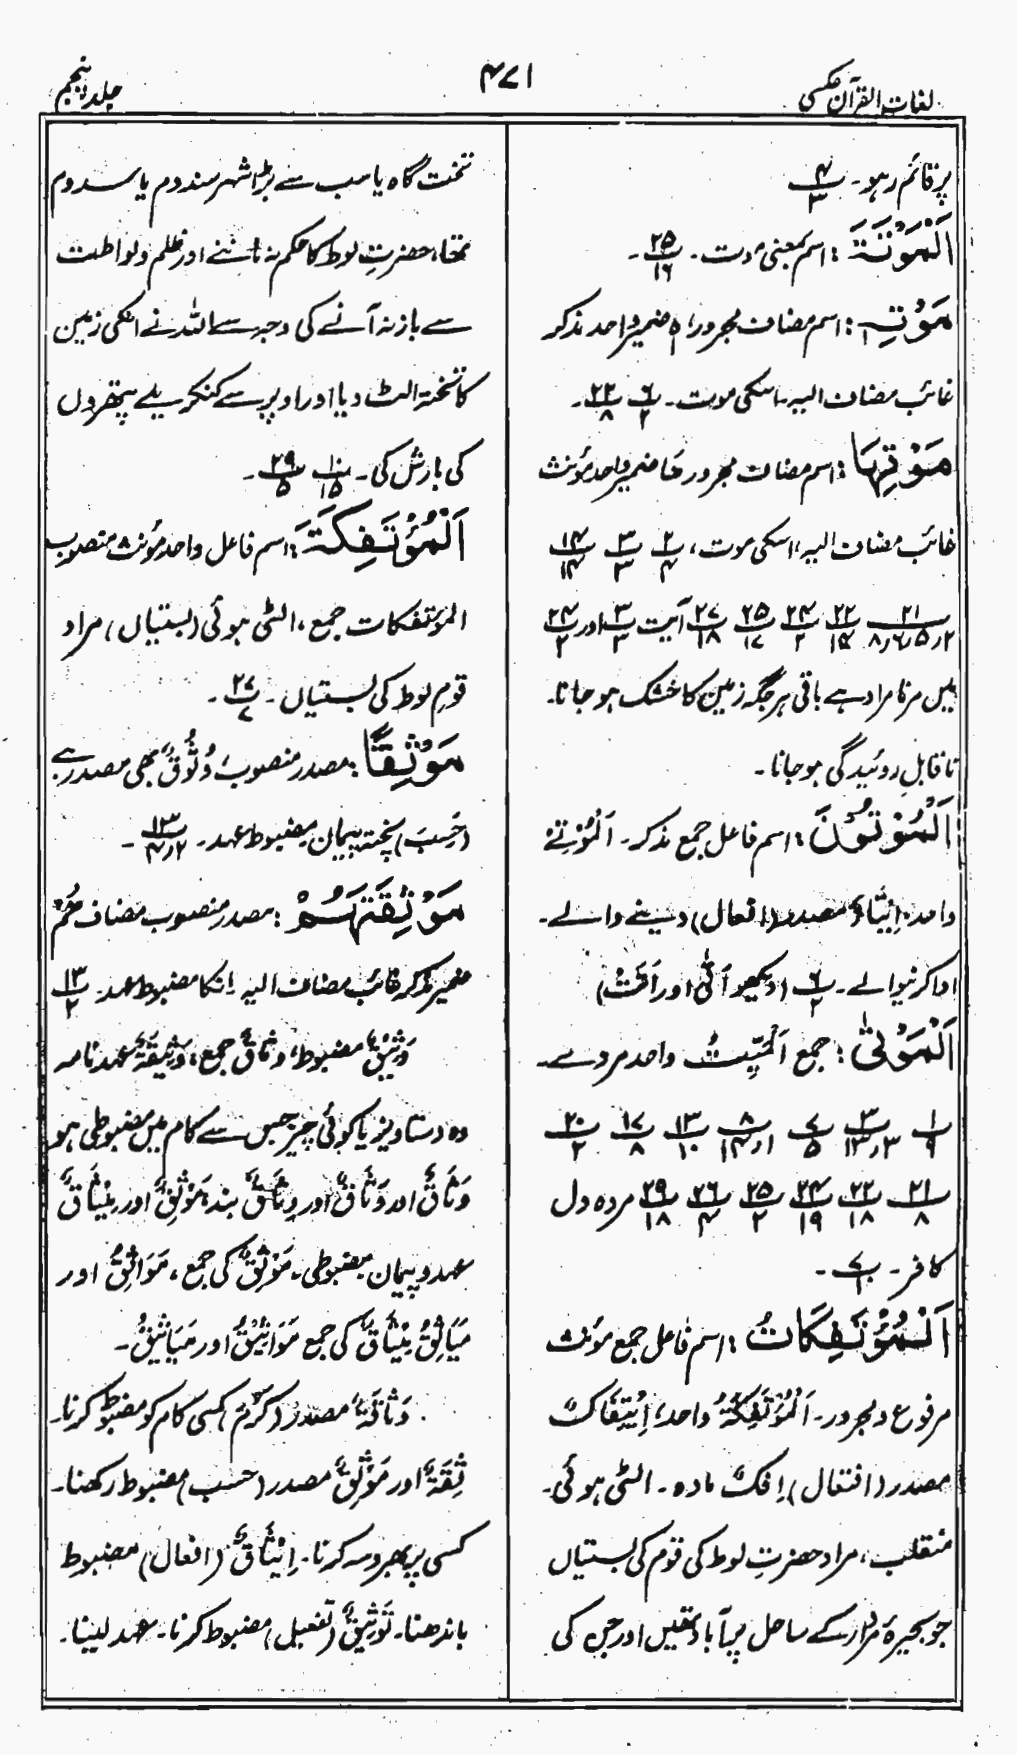 لغات القرآن عکسی
۴۷۱
جلد پنجم
پر قائم رہو۔ ۴/۳
اَلْمَوْتَۃَ : اسم بمعنی موت۔ ۲۵/۱۶۔
مَوْتِہٖ : اسم مضاف مجرور ہٖ ضمیر واحد مذکر
غائب مضاف الیہ۔ اسکی موت۔ ۶/۲ ۲۲/۸۔
مَوْتِہَا : اسم مضاف مجرور ھَا ضمیر واحد مؤنث
غائب مضاف الیہ، اسکی موت، ۲/۴ ۳/۳ ۱۴/۱۴
۲۱/۲،۵،۶،۸ ۲۲/۱۵ ۲۴/۲ ۲۵/۱۷ ۲۷/۱۸ آیت ۳/۳ اور ۲۴/۲
میں مرنا مراد ہے باقی ہر جگہ زمین کا خشک ہو جانا۔
ناقابلِ روئیدگی ہو جانا۔
اَلْمُؤْتُوْنَ : اسم فاعل جمع مذکر۔ اَلْمُؤْتِیْ
واحد۔ اِیْتَاءٌ مصدر (افعال) دینے والے۔
ادا کرنیوالے۔ ۶/۲ (دیکھو آتٰی اور آتَتْ)
اَلْمَوْتٰی : جمع اَلْمَیِّتُ واحد مردے۔
۱/۹ ۳/۳،۱۳ ۷/۵ ۸/۱،۱۴ ۱۳/۱۰ ۱۷/۸ ۲۰/۲
۲۱/۸ ۲۲/۱۸ ۲۴/۱۹ ۲۵/۲ ۲۶/۴ ۲۹/۱۸ مردہ دل
کافر۔ ۷/۱۔
اَلْمُؤْتَفِکَاتُ : اسم فاعل جمع مؤنث
مرفوع و مجرور۔ اَلْمُؤْتَفِکَۃُ واحد، اِئْتِفَاکٌ
مصدر (افتعال) اِفْکٌ مادہ۔ الٹی ہوئی۔
منقلب، مراد حضرتِ لوط کی قوم کی بستیاں
جو بحیرۂ مردار کے ساحل پر آباد تھیں اور جن کی
تخت گاہ یا سب سے بڑا شہر سندوم یا سدوم
تھا، حضرتِ لوط کا حکم نہ ماننے اور ظلم و لواطت
سے باز نہ آنے کی وجہ سے اللہ نے انکی زمین
کا تختہ الٹ دیا اور اوپر سے کنکریلے پتھروں
کی بارش کی۔ ۱۰/۱۵ ۲۹/۵۔
اَلْمُؤْتَفِکَۃَ : اسم فاعل واحد مؤنث منصوب
المؤتفکات جمع، الٹی ہوئی (بستیاں) مراد
قومِ لوط کی بستیاں۔ ۲۷/۷۔
مَوْثِقًا : مصدر منصوب، وُثُوْقٌ بھی مصدر ہے
(حَسِبَ) پختہ پیمان مضبوط عہد۔ ۱۳/۲،۴۔
مَوْثِقَہُمْ : مصدر منصوب مضاف ھُمْ
ضمیر مذکر غائب مضاف الیہ۔ انکا مضبوط عہد۔ ۱۳/۲
وَثِیْقٌ مضبوط، وِثَاقٌ جمع، وَثِیْقَۃٌ عہدنامہ
وہ دستاویز یا کوئی چیز جس سے کام میں مضبوطی ہو
وَثَاقٌ اور وَثَاقٌ اور وِثَاقٌ بند، مَوْثِقٌ اور مِیْثَاقٌ
عہد و پیمان مضبوطی۔ مَوْثِقٌ کی جمع، مَوَاثِقُ اور
مَیَاثِقُ مِیْثَاقٌ کی جمع مَوَاثِیْقُ اور مَیَاثِیْقُ۔
وَثَاقَۃٌ مصدر (کَرُمَ) کسی کام کو مضبوط کرنا۔
ثِقَۃٌ اور مَوْثِقٌ مصدر (حسب) مضبوط رکھنا۔
کسی پر بھروسہ کرنا۔ اِیْثَاقٌ (افعال) مضبوط
باندھنا۔ تَوْثِیْقٌ (تفعیل) مضبوط کرنا۔ عہد لینا۔